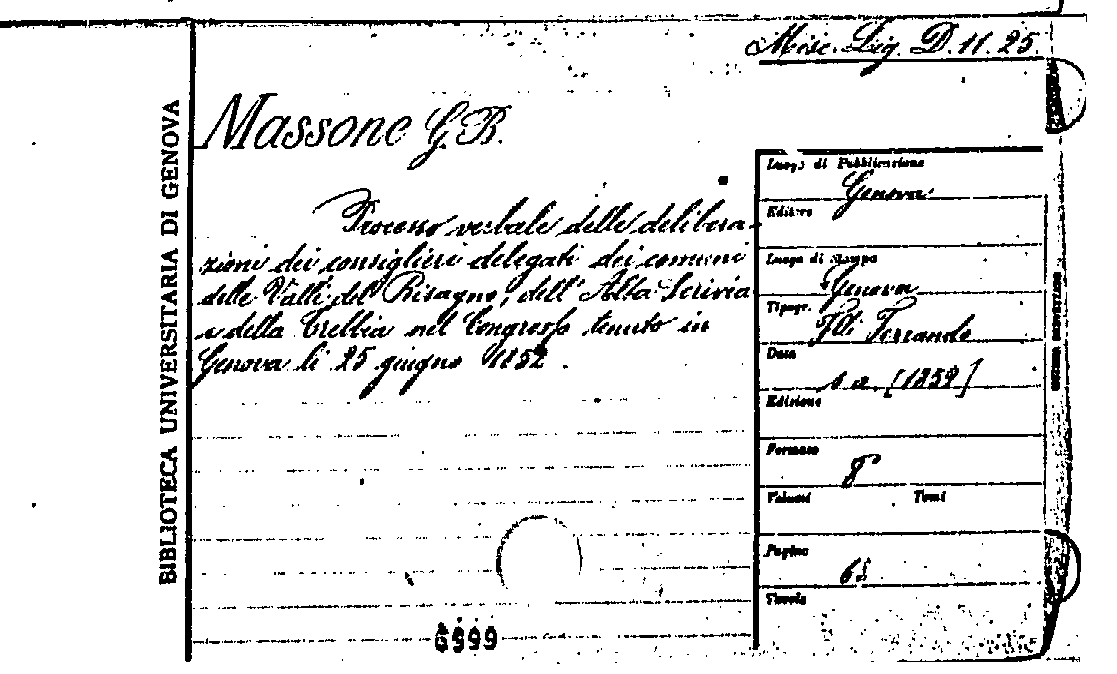 Misc. Lig. D. 11. 25.
BIBLIOTECA UNIVERSITARIA DI GENOVA
Massone G.B.
Processo verbale delle delibera-
zioni dei consiglieri delegati dei comuni
delle Valli del Bisagno, dell'Alta Scrivia
e della Trebbia nel Congresso tenuto in
Genova li 25 giugno 1852.
Luogo di Pubblicazione
Genova
Editore
Luogo di Stampa
Genova
Tipogr.
Flli Ferrando
Data
s. a. [1852]
Edizione
Formato
8°
Volumi Tomi
Pagine
Tavole
6999